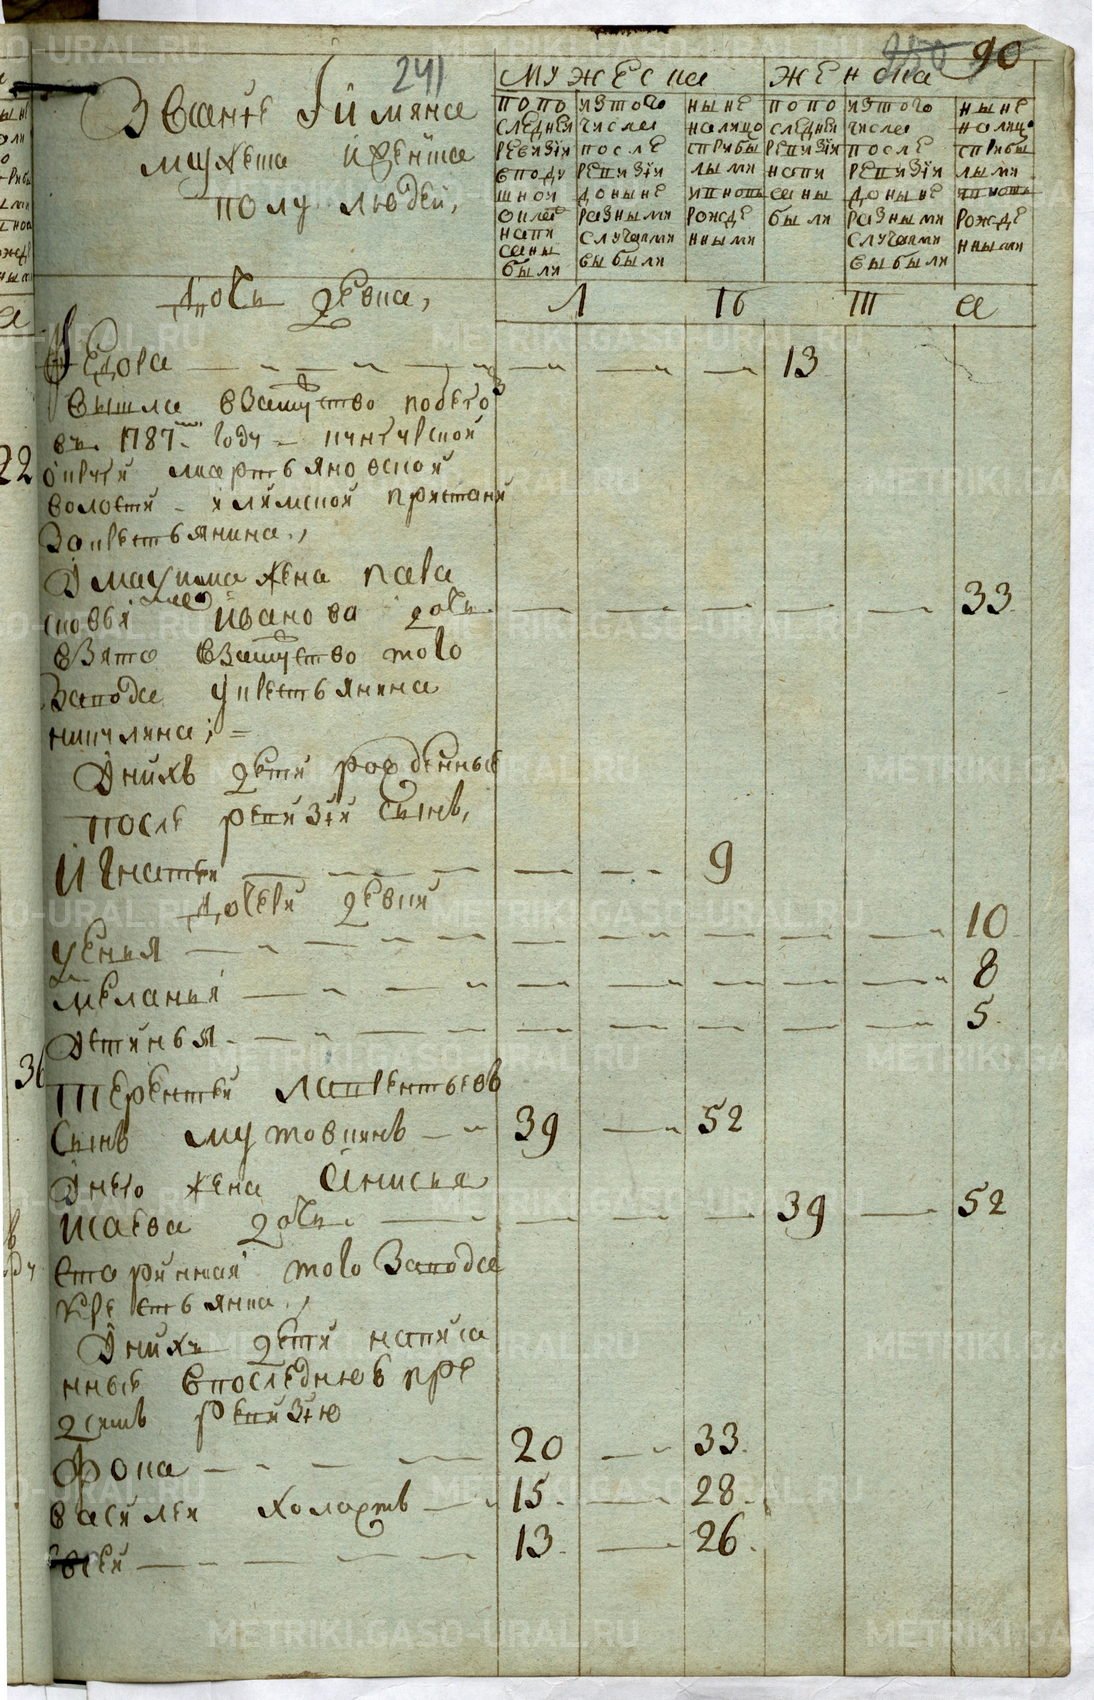 241
250 90
Званiе Ӏ имяна
мужеска и женска
полу людей,
мужеска
женска
попо
следней
ревизiи
вподу
шной
окладъ
напи
саны
были
изтого
числа
после
ревизiи
доныне
разными
случаями
выбыли
ныне
налицо
сприбы
лыми
ивновь
рожде
нными
попо
следней
ревизiи
напи
саны
были
изтого
числа
после
ревизiи
доныне
разными
случаями
выбыли
ныне
налицо
сприбы
лыми
ивновь
рожде
нными
дочь девка,
Федора 13
вышла взамужство
въ 1787 году кунгурской
округи мартьяновской
волости илимской пристани
закрестьянина,
Умаксима жена пара
сковья Иванова дочь 33
взята взамужство того
завода укрестьянина
Уних дети рожденные
после ревизiи сынъ,
Игнатей 9
дочери девки
Ксенья 10
Меланья 8
Устинья 5
36
Терентей лаврентьевъ
сынъ мутовкинъ 39 52
Унего жена Анисья
Исаева дочь 39 52
старинная того завода
крестьянка,
Унихъ дети написа
нные впоследнюю пре
дсимъ ревизiю
Фока 20 33
Василей холостъ 15 28
13 26
METRIKI.GASO-URAL.RU